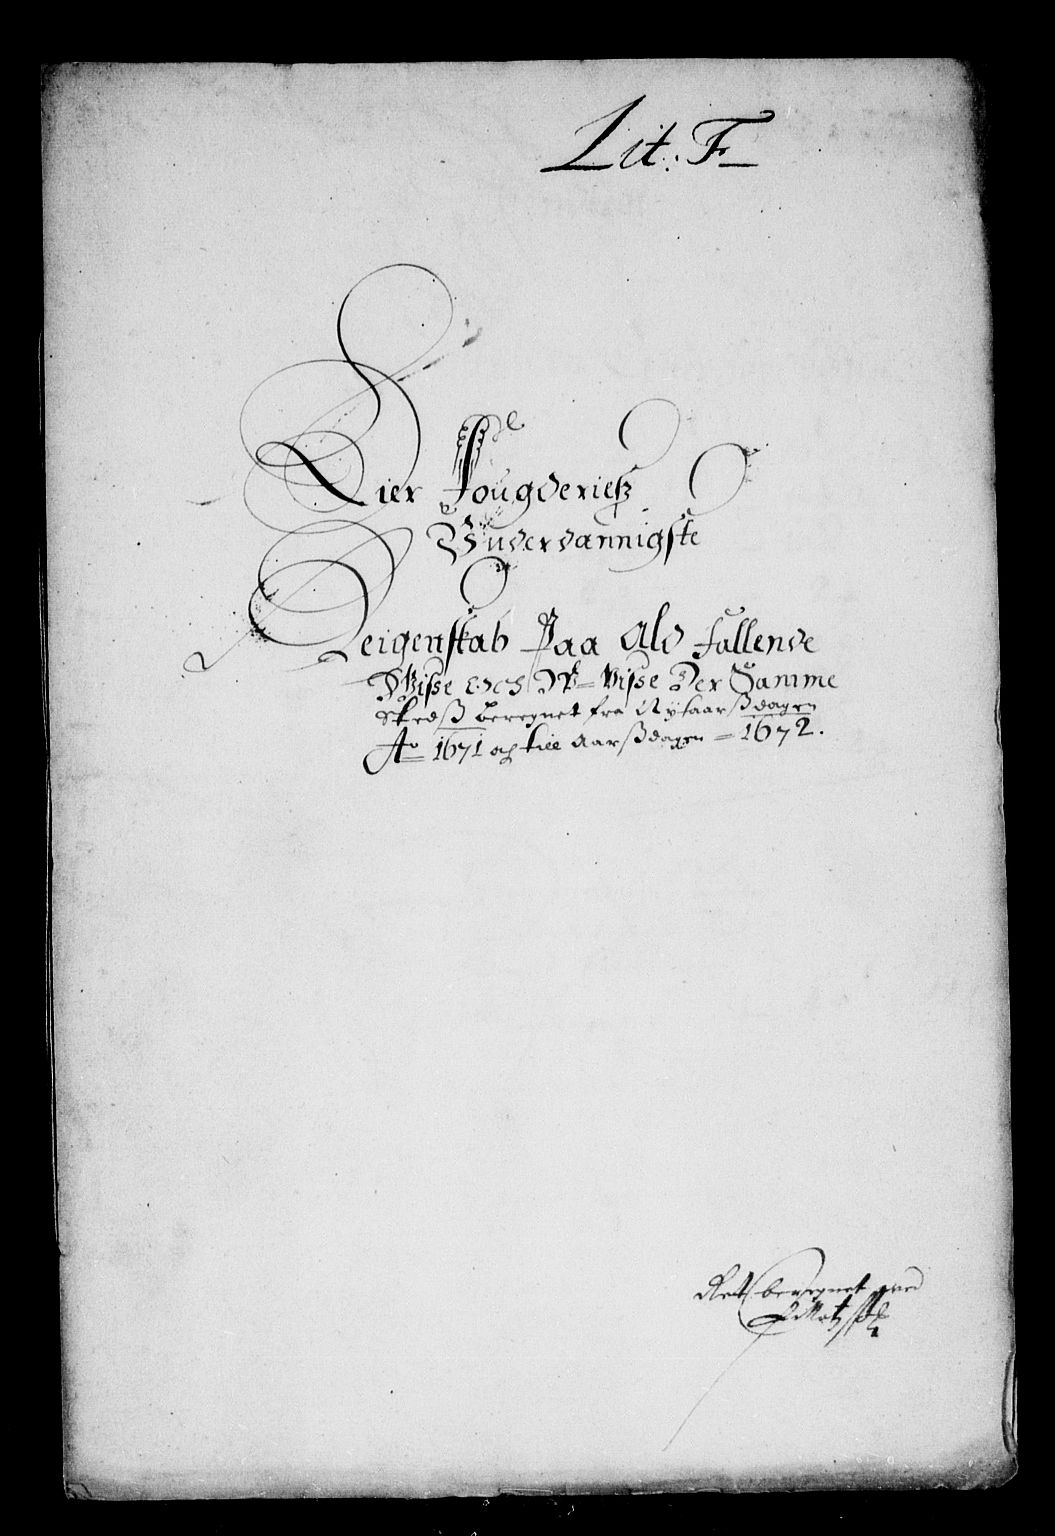 Lit. F
Lier Fougderiesz
Vnderdannigste
Reigenskab Paa Ald fallende
Wisse och V-visse Der Samme
Stedsz beregnet fra Nytaarszdagen
Ao 1671 och till Aarszdagen 1672.
Ret beregnet